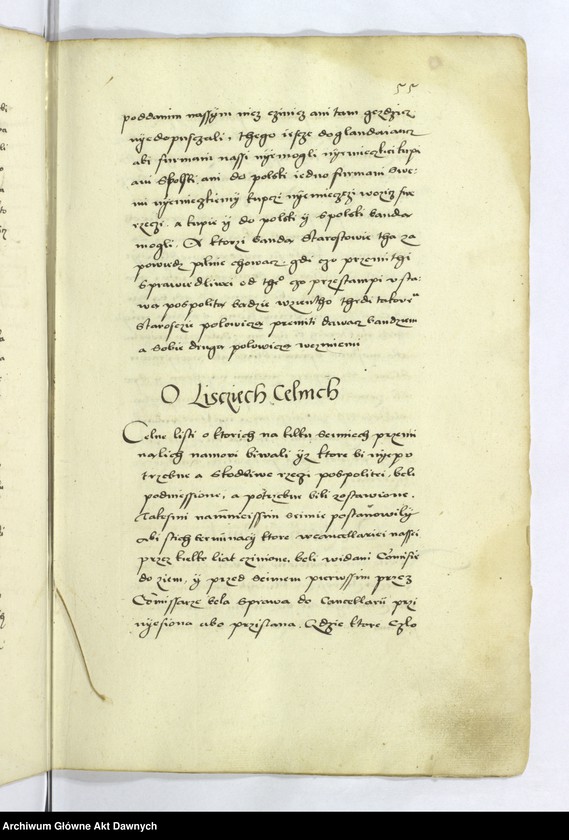 55
poddanim nassym niez czinicz ani tam gezdzicz
nyedopusczali, thego iescze doglandaiancz
abi furmani nassi nyemogli nyemieczkici kupi
ani Spolski ani do polski iedno furmani swe:
mi nyemieczkiemy kupczi nyemieczczi wozicz swe
rzeczi. a kupie y do polski y spolski banda
mogli. A ktorzi banda Starostowie tha za
powiedz pilnie chowacz. gdi czo przemithi
sprawiedliwei od tego czo przestampi vsta:
wa pospolita badzie wzientho thedi takowemu
Starosczie polowicza premiti dawacz bandziem
a sobie druga polowicza wezmiemi
O Liscziech Celnich
Celne listi o ktorich na kilku seimiech przemi
nalich namovi biwali yz ktore bi nyepo
trzebne a skodliwe rzeczi pospolitei, beli
podniessione, a potrzebne bili zostawione.
Takesmi naninieissim seimie postanowily
abi stich terminacy ktore wcancellariei nassei
przez kielko liat czinione, beli widani Comisie
do ziem, y przed seimem pierwssim przez
Comissarze bela sprawa do Cancellarii przi
nyesiona abo przislana. Gdzie ktore Czlo
Archiwum Główne Akt Dawnych